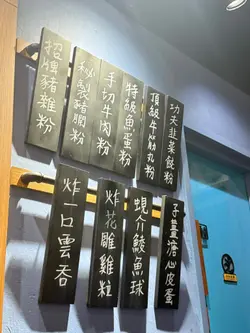 招牌豬雜粉
秘製豬腩粉
手切牛肉粉
特級魚蛋粉
頂級牛筋丸粉
功夫韭菜餃粉
炸一口雲吞
炸花雕雞粒
蜆介鯪魚球
子薑溏心皮蛋